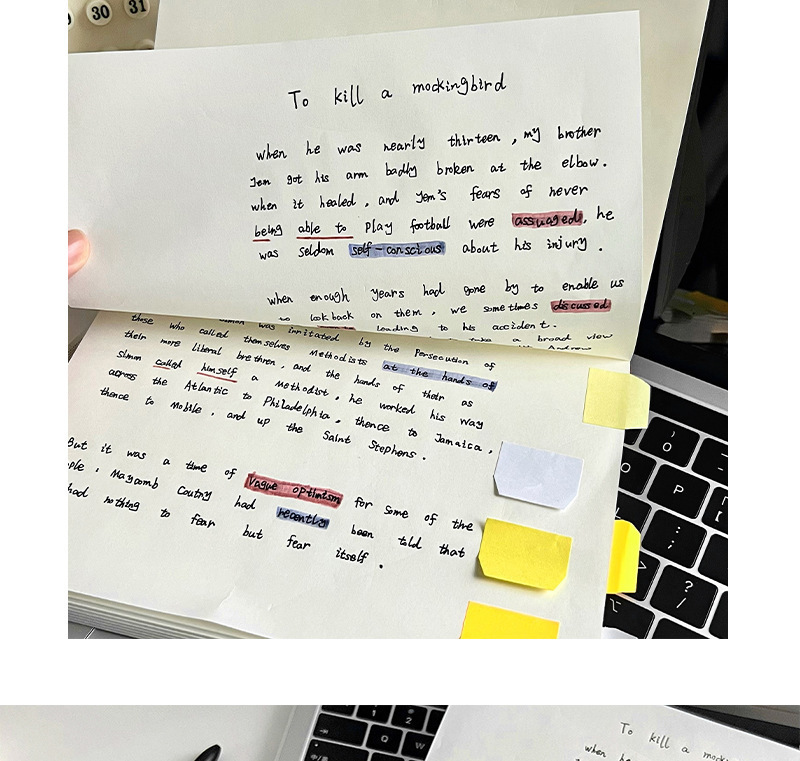 30 31
To kill a mockingbird
when he was nearly thirteen , my brother
Jem got his arm badly broken at the elbow .
when it healed , and Jem's fears of never
being able to play football were assuaged , he
was seldom self-conscious about his injury .
when enough years had gone by to enable us
to look back on them , we sometimes discussed
leading to his accident .
take a broad view
Andrew
was irritated by the Persecution of
those who called themselves Methodists at the hands of
their more liberal brethren , and the hands of their as
simon called himself a Methodist , he worked his way
across the Atlantic to Philadelphia , thence to Jamaica ,
thence to Mobile , and up the Saint Stephens .
But it was a time of Vague optimism for some of the
ple , Maycomb Coutny had recently been told that
had nothing to fear but fear itself .
O
P
:
;
?
/
1
2
Q
W
To kill a mock
when he